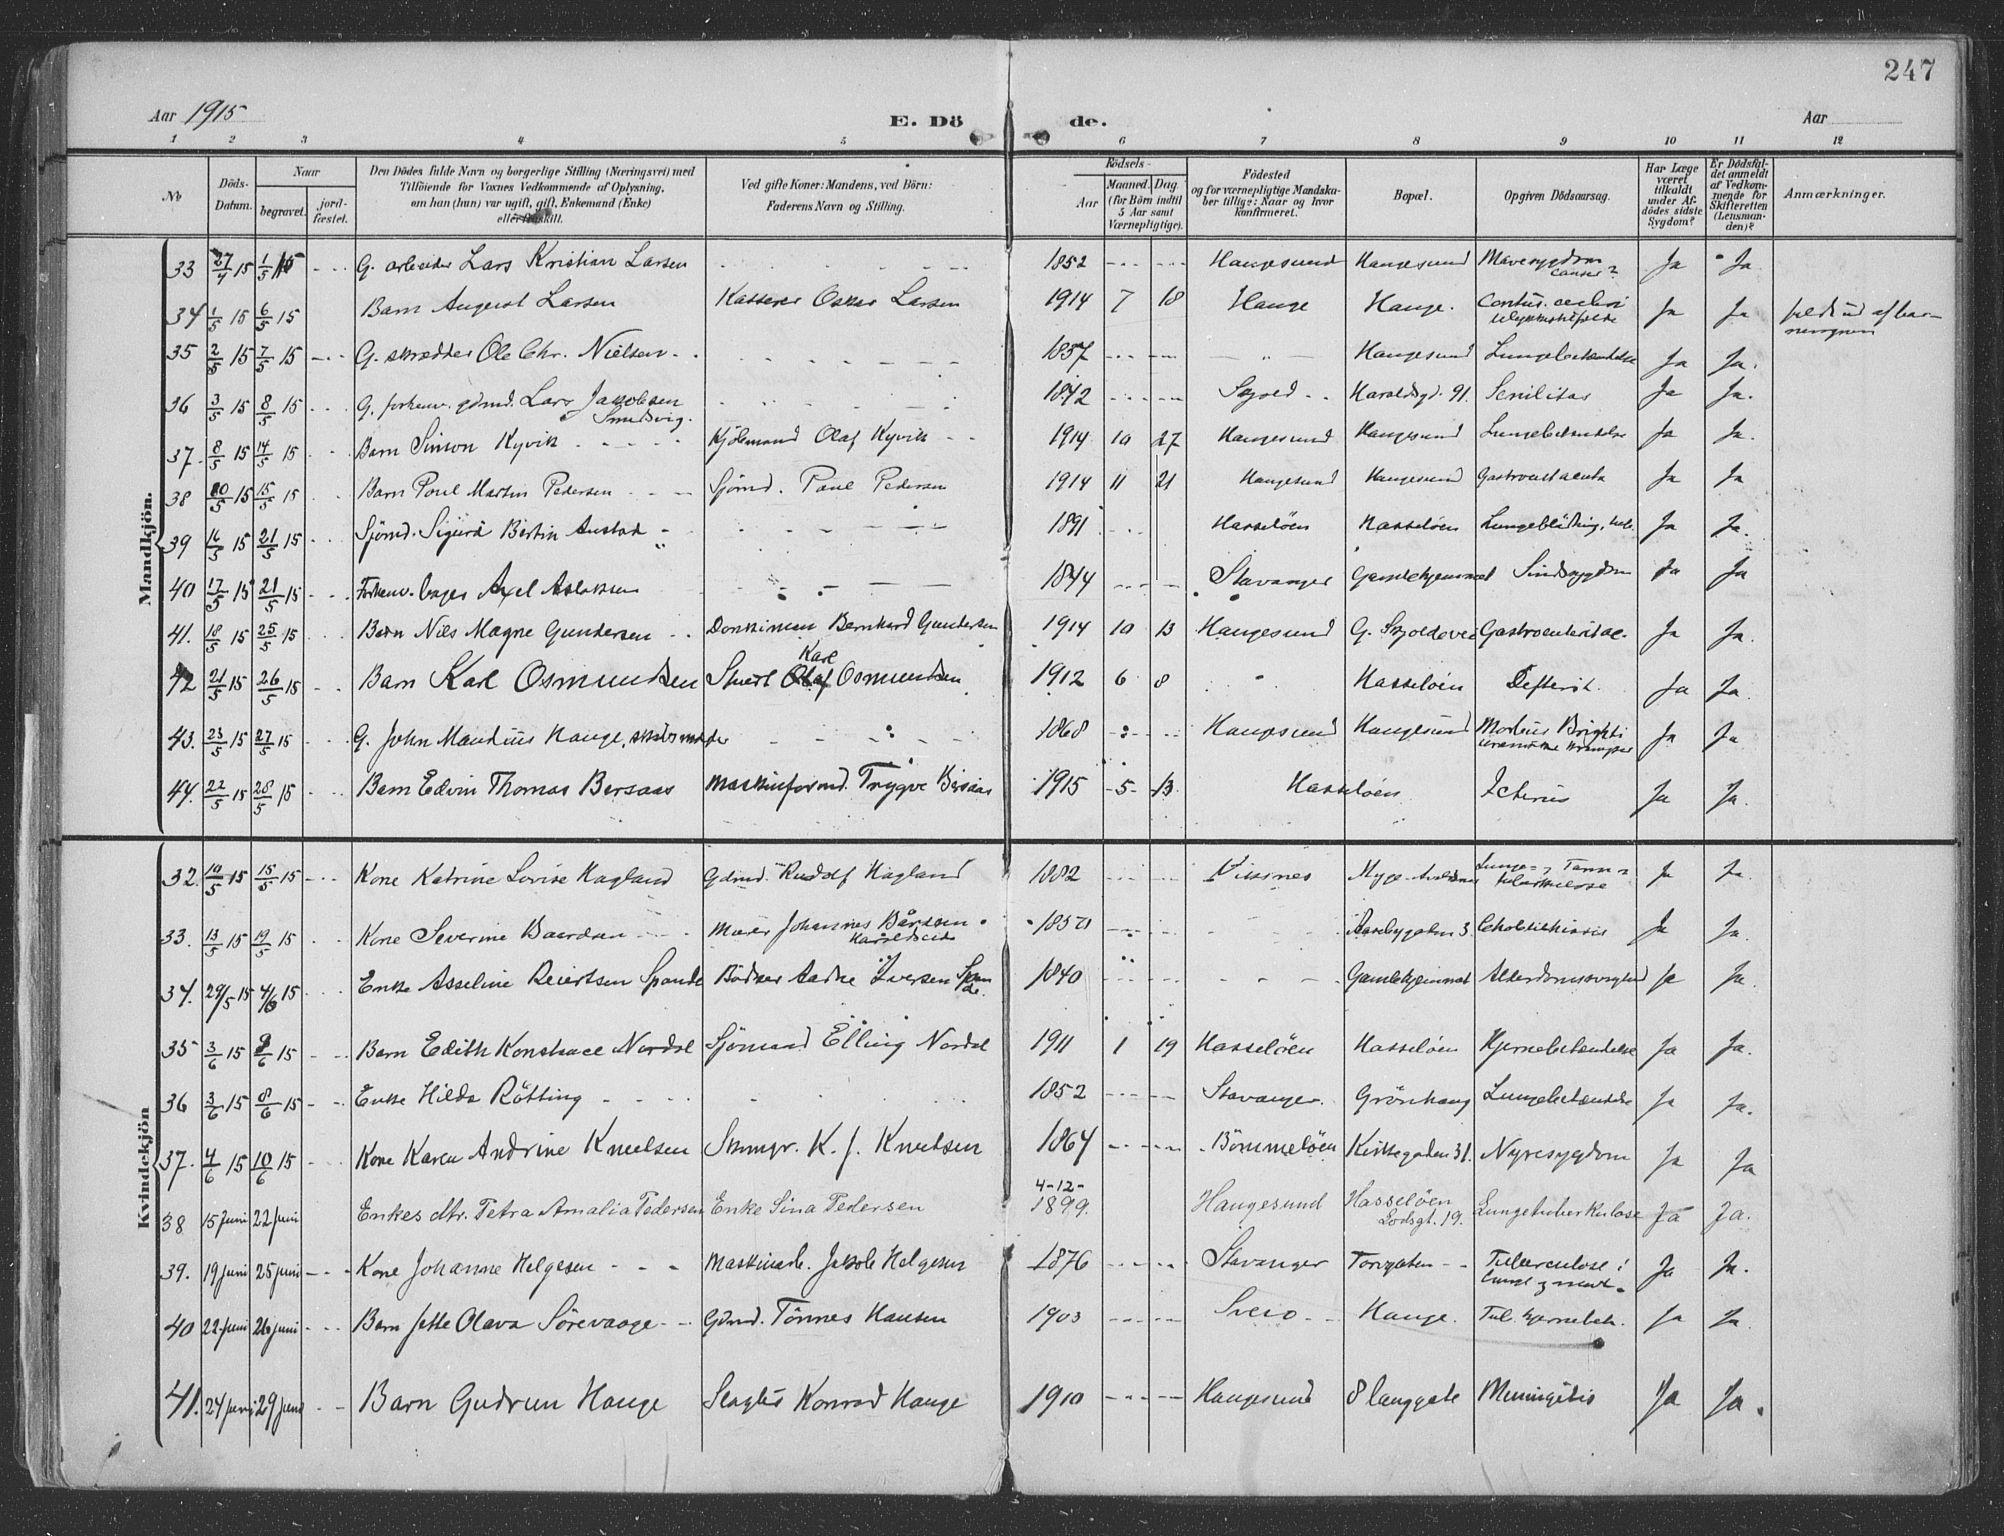 247
Aar 1915 E. Dö de. Aar
1 2 3 4 5 6 7 8 9 10 11 12
No Döds-Datum. Naar begravet. jord-fæstet. Den Dödes fulde Navn og borgerlige Stilling (Næringsvei) med Tilföiende for Voxnes Vedkommende af Oplysning, om han (hun) var ugift, gift, Enkemand (Enke) eller fraskilt. Ved gifte Koner: Mandens, ved Börn: Faderens Navn og Stilling. Födsels- Aar Maaned. Dag. (for Börn indtil 5 Aar samt Værnepligtige). Födested og for værnepligtige Mandskaber tillige: Naar og hvor konfirmeret. Bopæl. Opgiven Dödsaarsag. Har Læge været tilkaldt under Afdödes sidste Sygdom? Er Dödsfaldet anmeldt af Vedkommende for Skifteretten (Lensmanden)? Anmærkninger.
Mandkjön.
33 27/4 15 1/5 15 G. arbeider Lars Kristian Larsen 1852 Haugesund Haugesund Mavesygdom cancer? Ja Ja
34 1/5 15 6/5 15 Barn August Larsen Kasserer Oskar Larsen 1914 7 18 Hauge Hauge. Contus. cerebri Ulykkestilfælde Ja Ja faldt ud af barnevognen
35 2/5 15 7/5 15 G. skrædder Ole Chr. Nielsen 1857 - " - Haugesund Lungebetændelse Ja Ja.
36 3/5 15 8/5 15 G. forhenv. gdmd. Lars Jakobsen Smedsvig. 1842 Skjold Haraldsgd. 91. Senilitas Ja Ja.
37. 8/5 15 14/5 15 Barn Simon Kyvik Kjöbmand Olaf Kyvik 1914 10 27 Haugesund Haugesund Lungebetændelse Ja Ja.
38 10/5 15 15/5 15 Barn Poul Martin Pedersen Sjömd. Paul Pedersen 1914 11 21 Haugesund Haugesund Ja Ja
39 16/5 15 21/5 15 Sjömd. Sigurd Bertin Austad 1891 Hasseløen Hasseløen Lungeblödning, Ja Ja.
40 17/5 15 21/5 15 Forhenv. bager Axel Aslaksen 1844 Stavanger Gamlehjemmet Sindssygdom Ja Ja
41. 18/5 15 25/5 15 Barn Nils Magne Gundersen Donkiman Bernhard Gundersen 1914 10 13 Haugesund G. Skjoldevei Ja Ja.
42 21/5 15 26/5 15 Barn Karl Osmundsen Stuert Karl Olaf Osmundsen 1912 6 8 " Hasseløen Difterit. Ja Ja.
43. 23/5 15 27/5 15 G. John Mandius Hauge, 1868 Haugesund Haugesund Morbus Brighti uræmiske kramper Ja Ja
44. 22/5 15 28/5 15 Barn Edvin Thomas Bersaas Maskinformd. Trygve Bersaas 1915 5 13 Hasseløen Icterus Ja Ja.
Kvindekjön
32. 10/5 15 15/5 15 Kone Katrine Lovise Hagland Gdmd. Rudolf Hagland 1882 Visnes Lunge- & Tarm- tuberkulose Ja Ja.
33. 13/5 15 19/5 15 Kone Severine Baardsen Murer Johannes Bårdsen Haraldseide Aasbygaten 3. Cholelithiasis Ja Ja.
34. 29/5 15 4/6 15 Enke Asseline Reiertsen Spande Bödker Aadne Iversen Spande. 1840 Gamlehjemmet Alderdomssvaghed Ja Ja.
35 3/6 15 9/6 15 Barn Edith Konstance Nordal Sjömand Elling Nordal 1911 1 19 Hasseløen Hasseløen Hjernebetændelse Ja Ja.
36 3/6 15 8/6 15 Enke Hilda Rötting 1852 Stavanger. Grönhaug Lungebetændelse Ja Ja.
37. 4/6 15 10/6 15 Kone Karen Andrine Knutsen Skomgr. K. J. Knutsen 1864 Bömmeløen Kirkegaden 31. Nyresygdom Ja Ja
38 15 juni 22 juni Enkes dtr. Petra Amalia Pedersen Enke Sina Pedersen 4-12-1899. Haugesund Hasseløen Lodsgt. 19. Lungetuberkulose Ja Ja.
39. 19 juni 25 juni Kone Johanne Helgesen Maskinarb. Jakob Helgesen 1876 Stavanger Torvgaten Tuberculose i lunge & mave. Ja Ja.
40 22 juni 26 juni Barn Jette Olava Sörevaage Gdmd. Tönnes Hansen 1903 Sveio Hauge. Tub. hjernebet. Ja Ja.
41. 24 juni 29 juni Barn Gudrun Hauge Slagter Konrad Hauge 1910 Haugesund 8 langgate Meningitis Ja Ja.